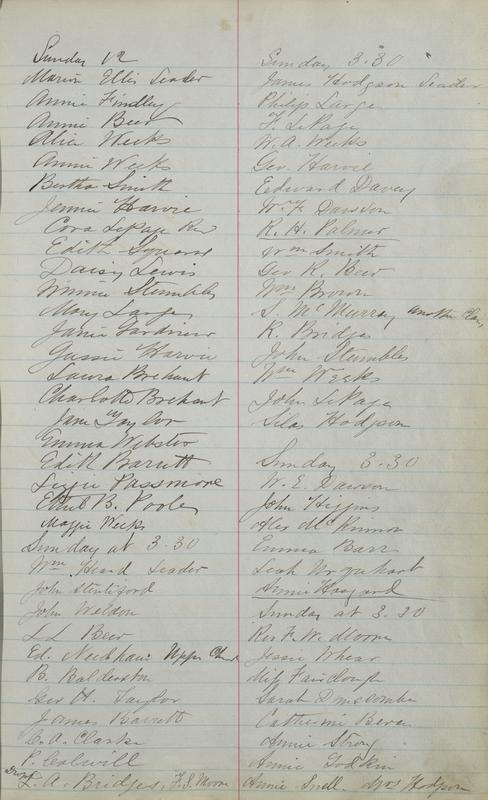 Sunday 12
Marion Ellis Leader
Annie Findley
Annie Beer
Alice Weeks
Annie Weeks
Bertha Smith
Jennie Harvie
Cora LePage
Edith Square
Daisy Lewis
Winnie Stumbles
Mary Large
Janie Gardiner
Gussie Harvie
Laura Brehaut
Charlotte Brehaut
Jane Taylor
Emma Webster
Edith Barrett
Lizzie Passmore
Ethel B. Poole
Maggie Weeks
Sunday at 3-30
Wm Heard Leader
John Stentiford
John Weldon
L L Beer
Ed. Needham Upper
B. Balderston
Geo H. Taylor
James Barrett
C. A. Clarke
P. Colwill
L. A. Bridges, F. S. Moore
Sunday 3-30
James Hodgson Leader
Philip Large
F. LePage
W. A. Weeks
Geo. Harvie
Edward Davey
W. F. Dawson
R. H. Palmer
Wm Smith
Geo R. Beer
Wm Brown
S. McMurray another Class
R. Bridges
John Stumbles
Wm Weeks
John LePage
Silas Hodgson
Sunday 3-30
W. E. Dawson
John Higgins
Alex McKinnon
Emma Barr
Leah Urquhart
Annie Haszard
Sunday at 3.30
Rev F. W. Moore
Jessie Whear
Miss Fairclough
Sarah Dunscombe
Catherine Beers
Annie Strong
Annie Godkin
Annie Snell. Mrs Hodgson